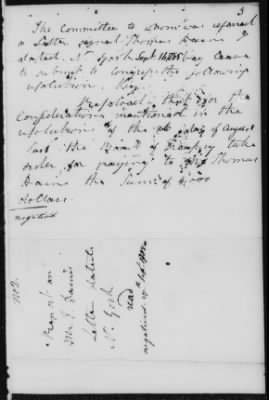 3
The Committee to whom was referred
a Letter signed Thomas Paine
dated N York Sept. 1785 beg leave
to submit to Congress the following
resolution. Viz
Resolved that for the
Considerations mentioned in the
resolution of the 26 day of August
last the Board of Treasury take
order for paying to Mr Thomas
Paine the Sum of 6000
dollars
negatived
No 2.
Report on
Mr T. Paine's
letter dated
N. York
read
negatived